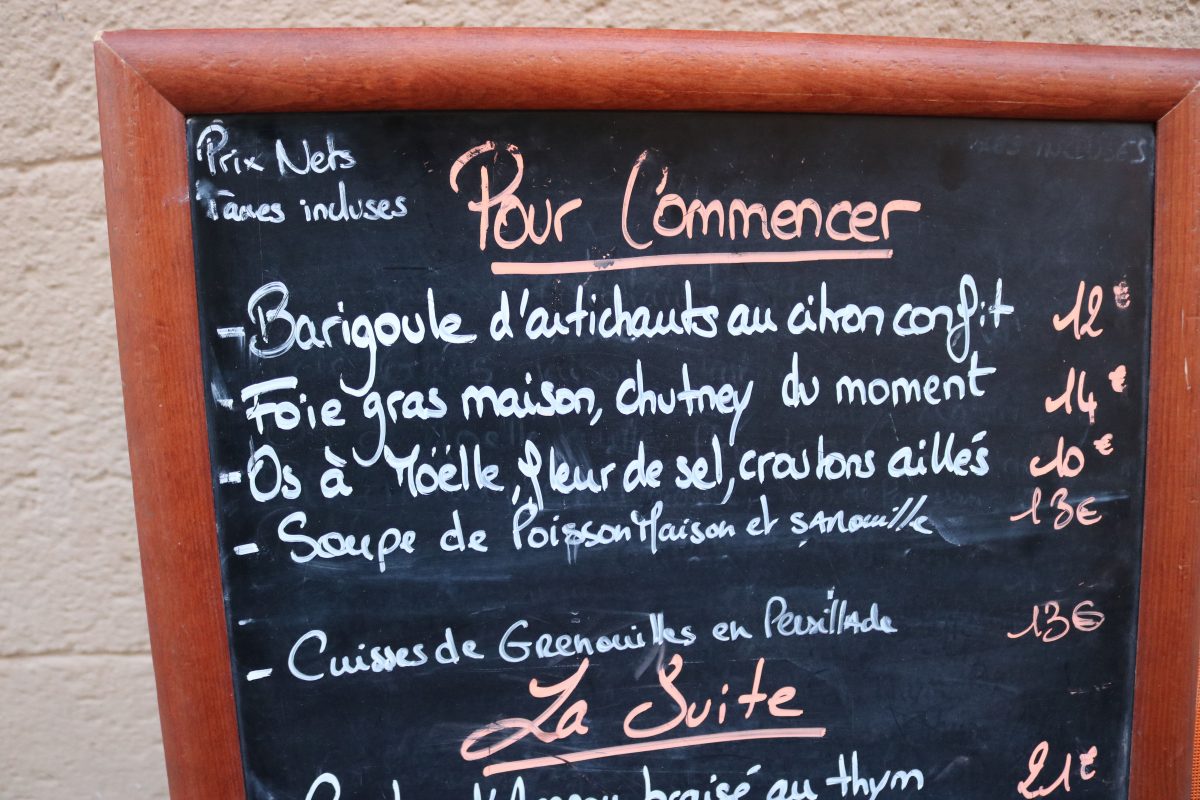 Prix Nets
Taxes incluses
Pour Commencer
- Barigoule d'artichauts au citron confit 12€
- Foie gras maison, chutney du moment 14€
- Os à Moëlle, fleur de sel, croutons aillés 10€
- Soupe de Poisson Maison et sa Rouille 13€
- Cuisses de Grenouilles en Persillade 13€
La Suite
braisé au thym 21€